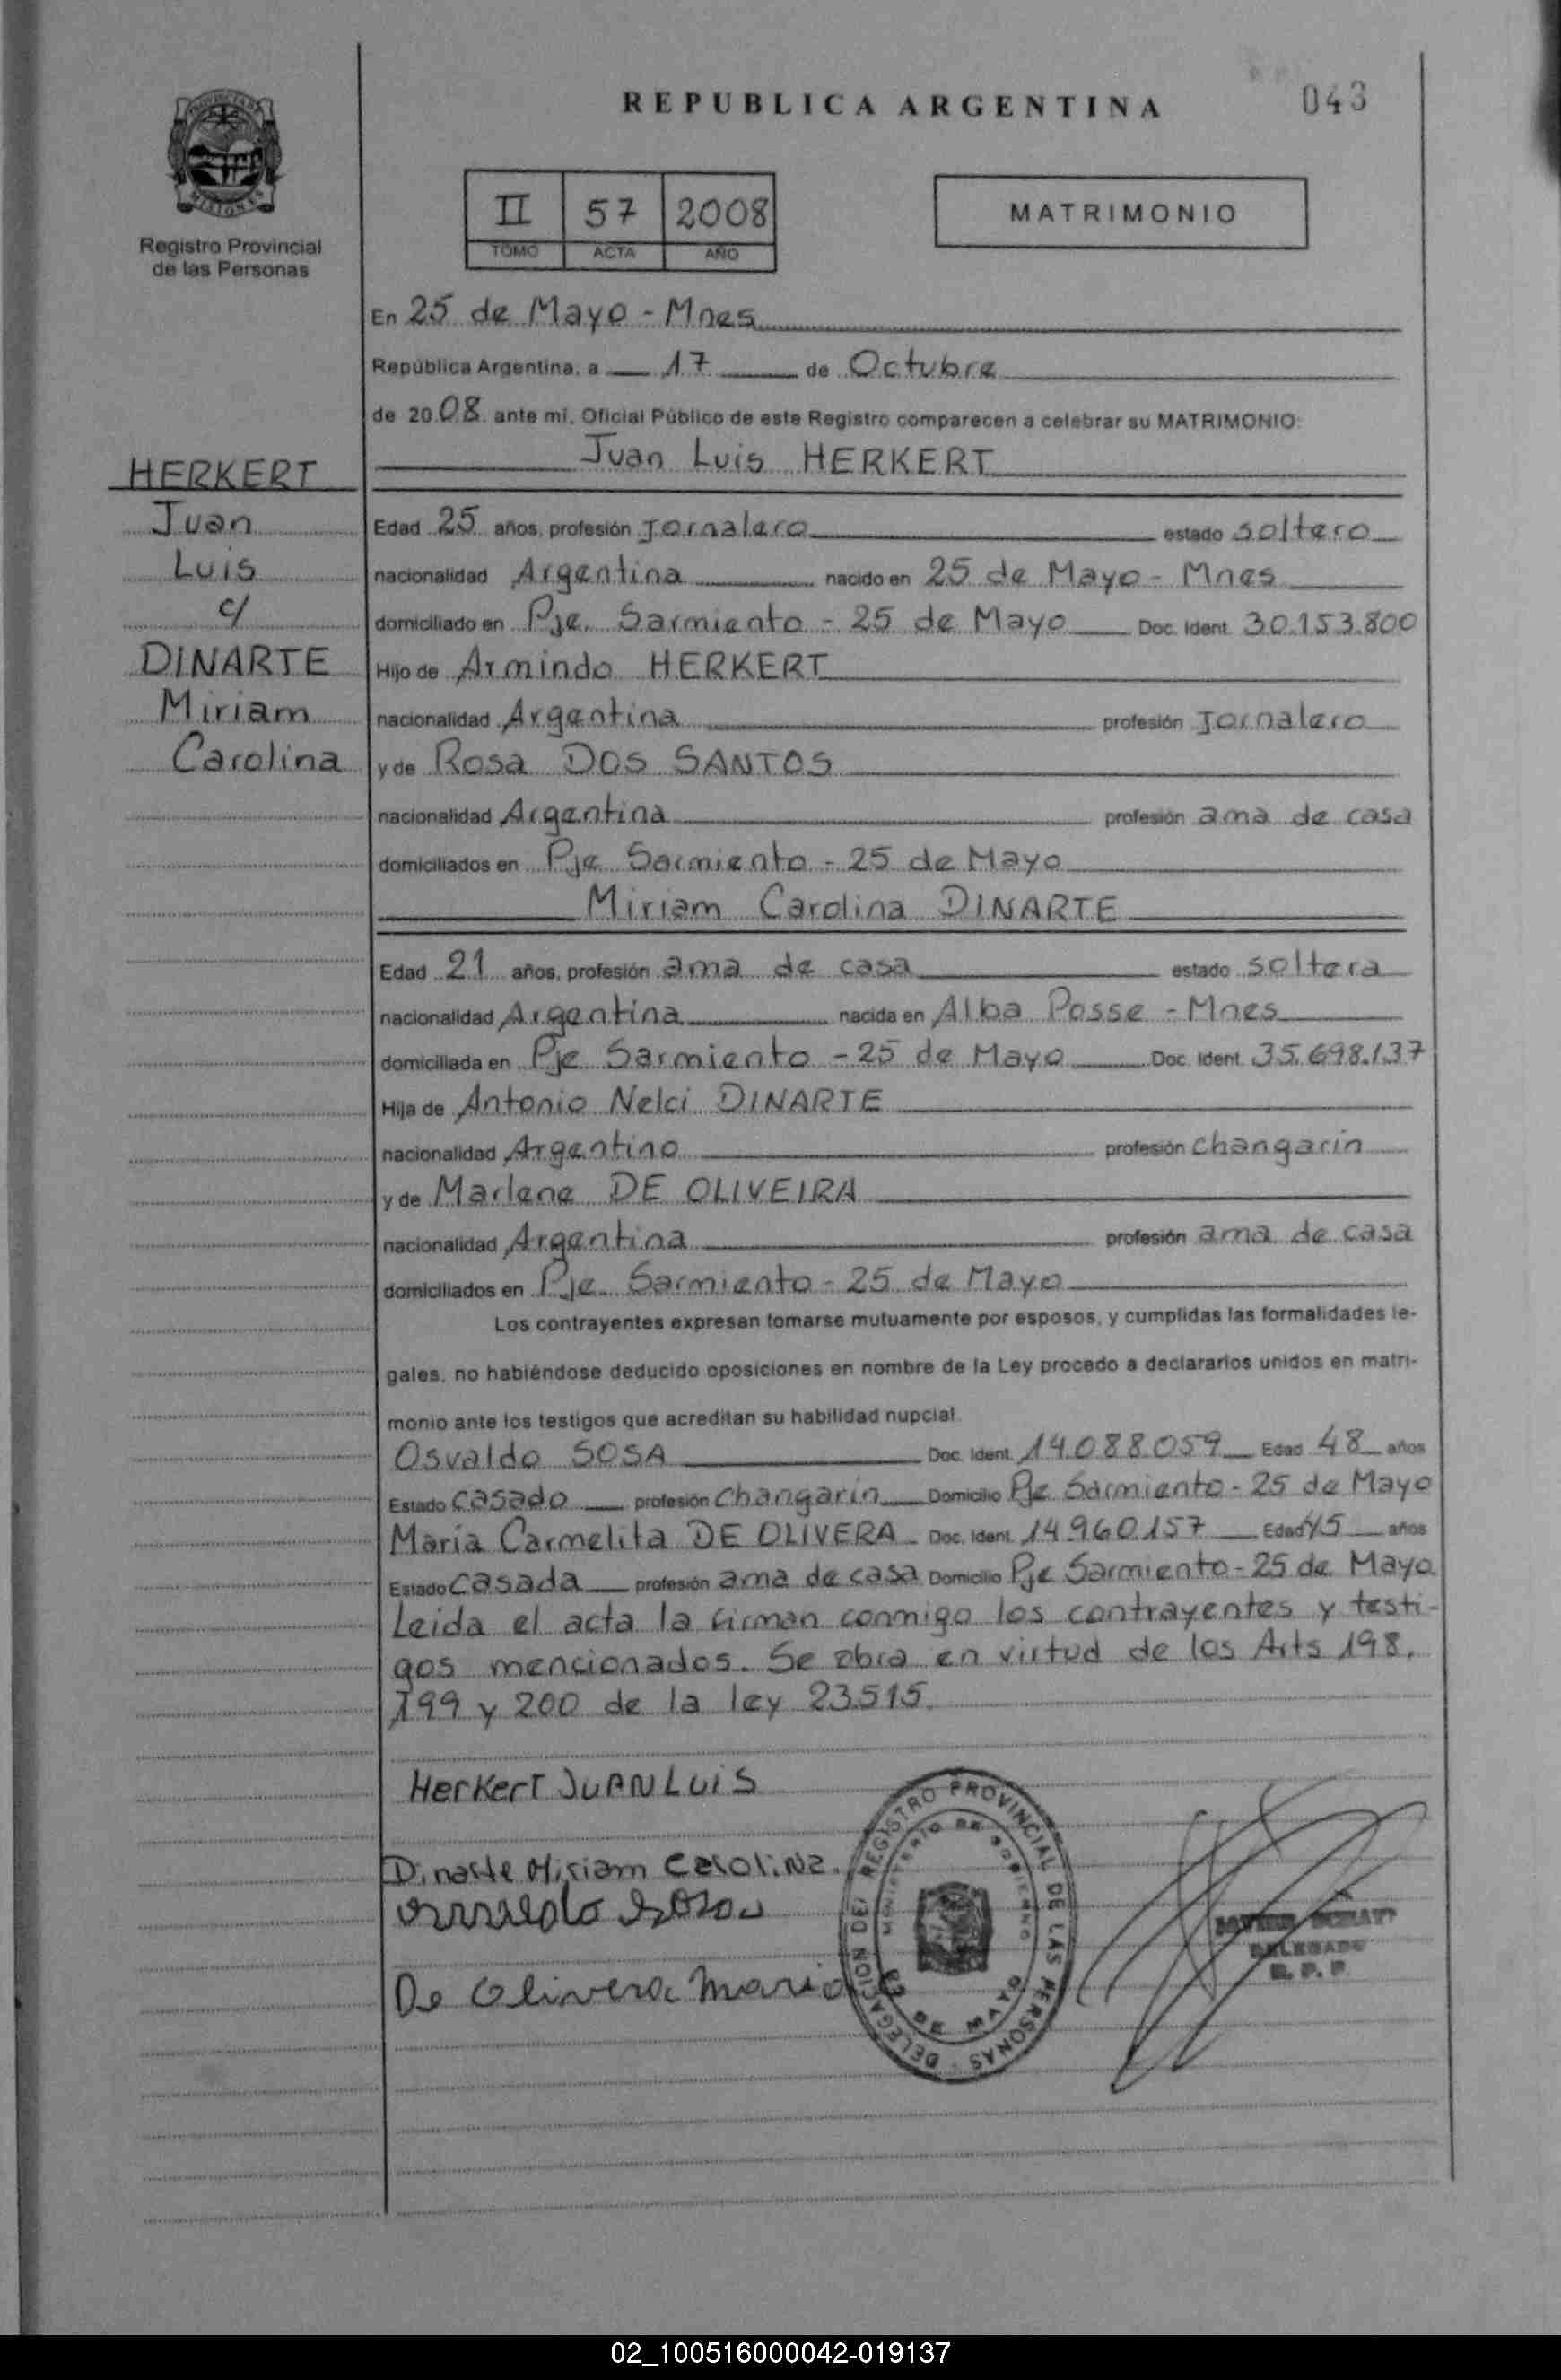 REPUBLICA ARGENTINA
043
PROVINCIA DE
MISIONES
Registro Provincial
de las Personas
II 57 2008
TOMO ACTA AÑO
MATRIMONIO
En 25 de Mayo - Mnes
República Argentina, a 17 de Octubre
de 2008 ante mí, Oficial Público de este Registro comparecen a celebrar su MATRIMONIO:
Juan Luis HERKERT
HERKERT
Juan
Luis
c/
DINARTE
Miriam
Carolina
Edad 25 años, profesión Jornalero estado soltero
nacionalidad Argentina nacido en 25 de Mayo - Mnes
domiciliado en Pje. Sarmiento - 25 de Mayo Doc. Ident. 30.153.800
Hijo de Armindo HERKERT
nacionalidad Argentina profesión Jornalero
y de Rosa DOS SANTOS
nacionalidad Argentina profesión ama de casa
domiciliados en Pje Sarmiento - 25 de Mayo
Miriam Carolina DINARTE
Edad 21 años, profesión ama de casa estado soltera
nacionalidad Argentina nacida en Alba Posse - Mnes
domiciliada en Pje Sarmiento - 25 de Mayo Doc. Ident. 35.698.137
Hija de Antonio Nelci DINARTE
nacionalidad Argentino profesión changarin
y de Marlene DE OLIVEIRA
nacionalidad Argentina profesión ama de casa
domiciliados en Pje. Sarmiento - 25 de Mayo
Los contrayentes expresan tomarse mutuamente por esposos, y cumplidas las formalidades le-
gales, no habiéndose deducido oposiciones en nombre de la Ley procedo a declararlos unidos en matri-
monio ante los testigos que acreditan su habilidad nupcial.
Osvaldo SOSA Doc. Ident. 14.088.059 Edad 48 años
Estado casado profesión changarin Domicilio Pje Sarmiento - 25 de Mayo
Maria Carmelita DE OLIVERA Doc. Ident. 14.960.157 Edad 45 años
Estado casada profesión ama de casa Domicilio Pje Sarmiento - 25 de Mayo.
Leida el acta la firman conmigo los contrayentes y testi-
gos mencionados. Se obra en virtud de los Arts 198,
199 y 200 de la ley 23515.
Herkert JUAN LUIS
Dinarte Miriam Carolina.
De Olivera Maria
DELEGACION DE REGISTRO PROVINCIAL DE LAS PERSONAS
MINISTERIO DE GOBIERNO
25 DE MAYO
DELEGADO
R. P. P.
02_100516000042-019137